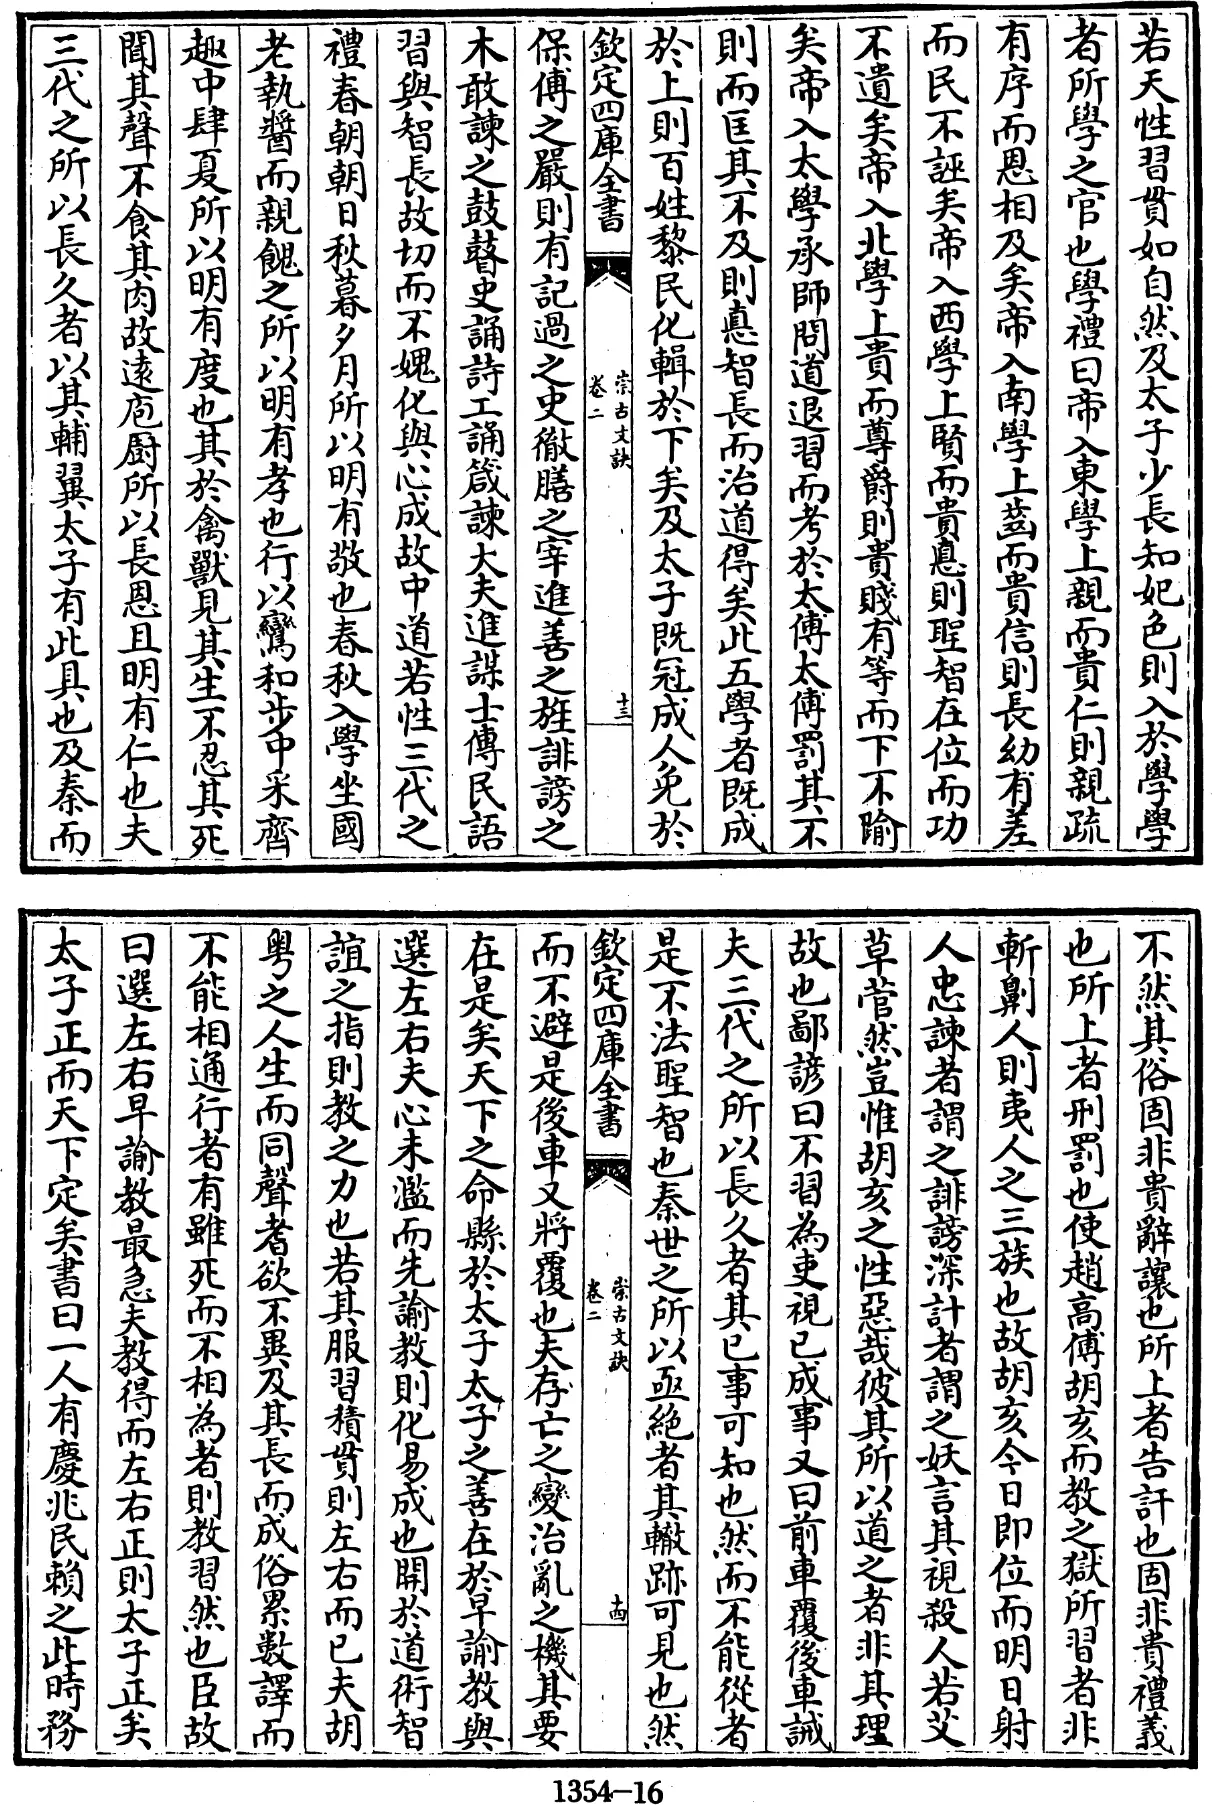 若天性習貫如自然及太子少長知妃色則入於學學
者所學之官也學禮曰帝入東學上親而貴仁則親疏
有序而恩相及矣帝入南學上齒而貴信則長幼有差
而民不誣矣帝入西學上賢而貴悳則聖智在位而功
不遺矣帝入北學上貴而尊爵則貴賤有等而下不踰
矣帝入太學承師問道退習而考於太傅太傅罰其不
則而匡其不及則悳智長而治道得矣此五學者既成
於上則百姓黎民化輯於下矣及太子既冠成人免於
欽定四庫全書
崇古文訣
卷二
十三
保傅之嚴則有記過之史徹膳之宰進善之旌誹謗之
木敢諫之鼓瞽史誦詩工誦箴諫大夫進謀士傳民語
習與智長故切而不媿化與心成故中道若性三代之
禮春朝朝日秋暮夕月所以明有敬也春秋入學坐國
老執醬而親餽之所以明有孝也行以鸞和步中采齊
趣中肆夏所以明有度也其於禽獸見其生不忍其死
聞其聲不食其肉故遠庖廚所以長恩且明有仁也夫
三代之所以長久者以其輔翼太子有此具也及秦而
不然其俗固非貴辭讓也所上者告訐也固非貴禮義
也所上者刑罰也使趙高傅胡亥而教之獄所習者非
斬劓人則夷人之三族也故胡亥今日即位而明日射
人忠諫者謂之誹謗深計者謂之妖言其視殺人若艾
草菅然豈惟胡亥之性惡哉彼其所以道之者非其理
故也鄙諺曰不習為吏視已成事又曰前車覆後車誡
夫三代之所以長久者其已事可知也然而不能從者
是不法聖智也秦世之所以亟絕者其轍跡可見也然
欽定四庫全書
崇古文訣
卷二
十四
而不避是後車又將覆也夫存亡之變治亂之機其要
在是矣天下之命縣於太子太子之善在於早諭教與
選左右夫心未濫而先諭教則化易成也開於道術智
誼之指則教之力也若其服習積貫則左右而已夫胡
粵之人生而同聲耆欲不異及其長而成俗累數譯而
不能相通行者有雖死而不相為者則教習然也臣故
曰選左右早諭教最急夫教得而左右正則太子正矣
太子正而天下定矣書曰一人有慶兆民賴之此時務
1354-16